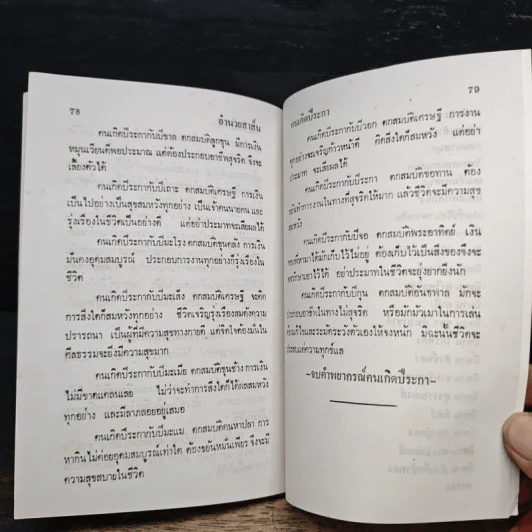 78
อำนวยสาส์น
คนเกิดปีระกากับปีขาล ตกสมบัติลูกขุน มีการเงิน
หมุนเวียนดีพอประมาณ แต่ต้องประกอบอาชีพสุจริต จึงจะ
เลี้ยงตัวได้
คนเกิดปีระกากับปีเถาะ ตกสมบัติเศรษฐี การเงิน
เป็นไปอย่างเป็นสุขสมหวังทุกอย่าง เป็นเจ้าคนนายคน และ
รุ่งเรืองในชีวิตเป็นอย่างดี แต่อย่าประมาทจะเสียผลได้
คนเกิดปีระกากับปีมะโรง ตกสมบัติขุนคลัง การเงิน
มั่นคงอุดมสมบูรณ์ ประกอบการงานทุกอย่างก็รุ่งเรืองใน
ชีวิต
คนเกิดปีระกากับปีมะเส็ง ตกสมบัติเศรษฐี จะคิด
การสิ่งใดก็สมหวังทุกอย่าง ชีวิตเจริญรุ่งเรืองสมดังความ
ปรารถนา เป็นผู้ที่มีความสุขทางกายดี แต่จิตใจต้องมั่นใน
ศีลธรรมจะยิ่งมีความสุขมาก
คนเกิดปีระกากับปีมะเมีย ตกสมบัติขุนช้าง การเงิน
ไม่มีขาดแคลนเลย ไม่ว่าจะทำการสิ่งใดก็ได้ผลสมหวัง
ทุกอย่าง และมีลาภลอยอยู่เสมอ
คนเกิดปีระกากับปีมะแม ตกสมบัติคนหาปลา การ
หากินไม่ค่อยอุดมสมบูรณ์เท่าใด ต้องขยันหมั่นเพียร จึงจะมี
ความสุขสบายในชีวิต
79
คนเกิดปีระกา
คนเกิดปีระกากับปีวอก ตกสมบัติเศรษฐี การงาน
ทุกอย่างจะเจริญก้าวหน้าดี คิดสิ่งใดก็สมหวัง แต่อย่า
ประมาท จะเสียผลได้
คนเกิดปีระกากับปีระกา ตกสมบัติขอทาน ต้อง
ทำการงานในทางที่สุจริตให้มาก แล้วชีวิตจะมีความสุข
สมหวัง
คนเกิดปีระกากับปีจอ ตกสมบัติพระอาทิตย์ เงิน
ได้มักเก็บไว้ไม่อยู่ ต้องเก็บไว้เป็นสิ่งของจึงจะ
รักษาเอาไว้ได้ อย่าประมาทในชีวิตจะยุ่งยากยิ่งนัก
คนเกิดปีระกากับปีกุน ตกสมบัติอันธพาล มักจะ
ประกอบอาชีพในทางไม่สุจริต หรือมักมัวเมาในการเล่น
ต้องแก้ไขและระมัดระวังตัวเองให้จงหนัก มิฉะนั้นชีวิตจะ
ประสบแต่ความทุกข์แล
-จบคำพยากรณ์คนเกิดปีระกา-